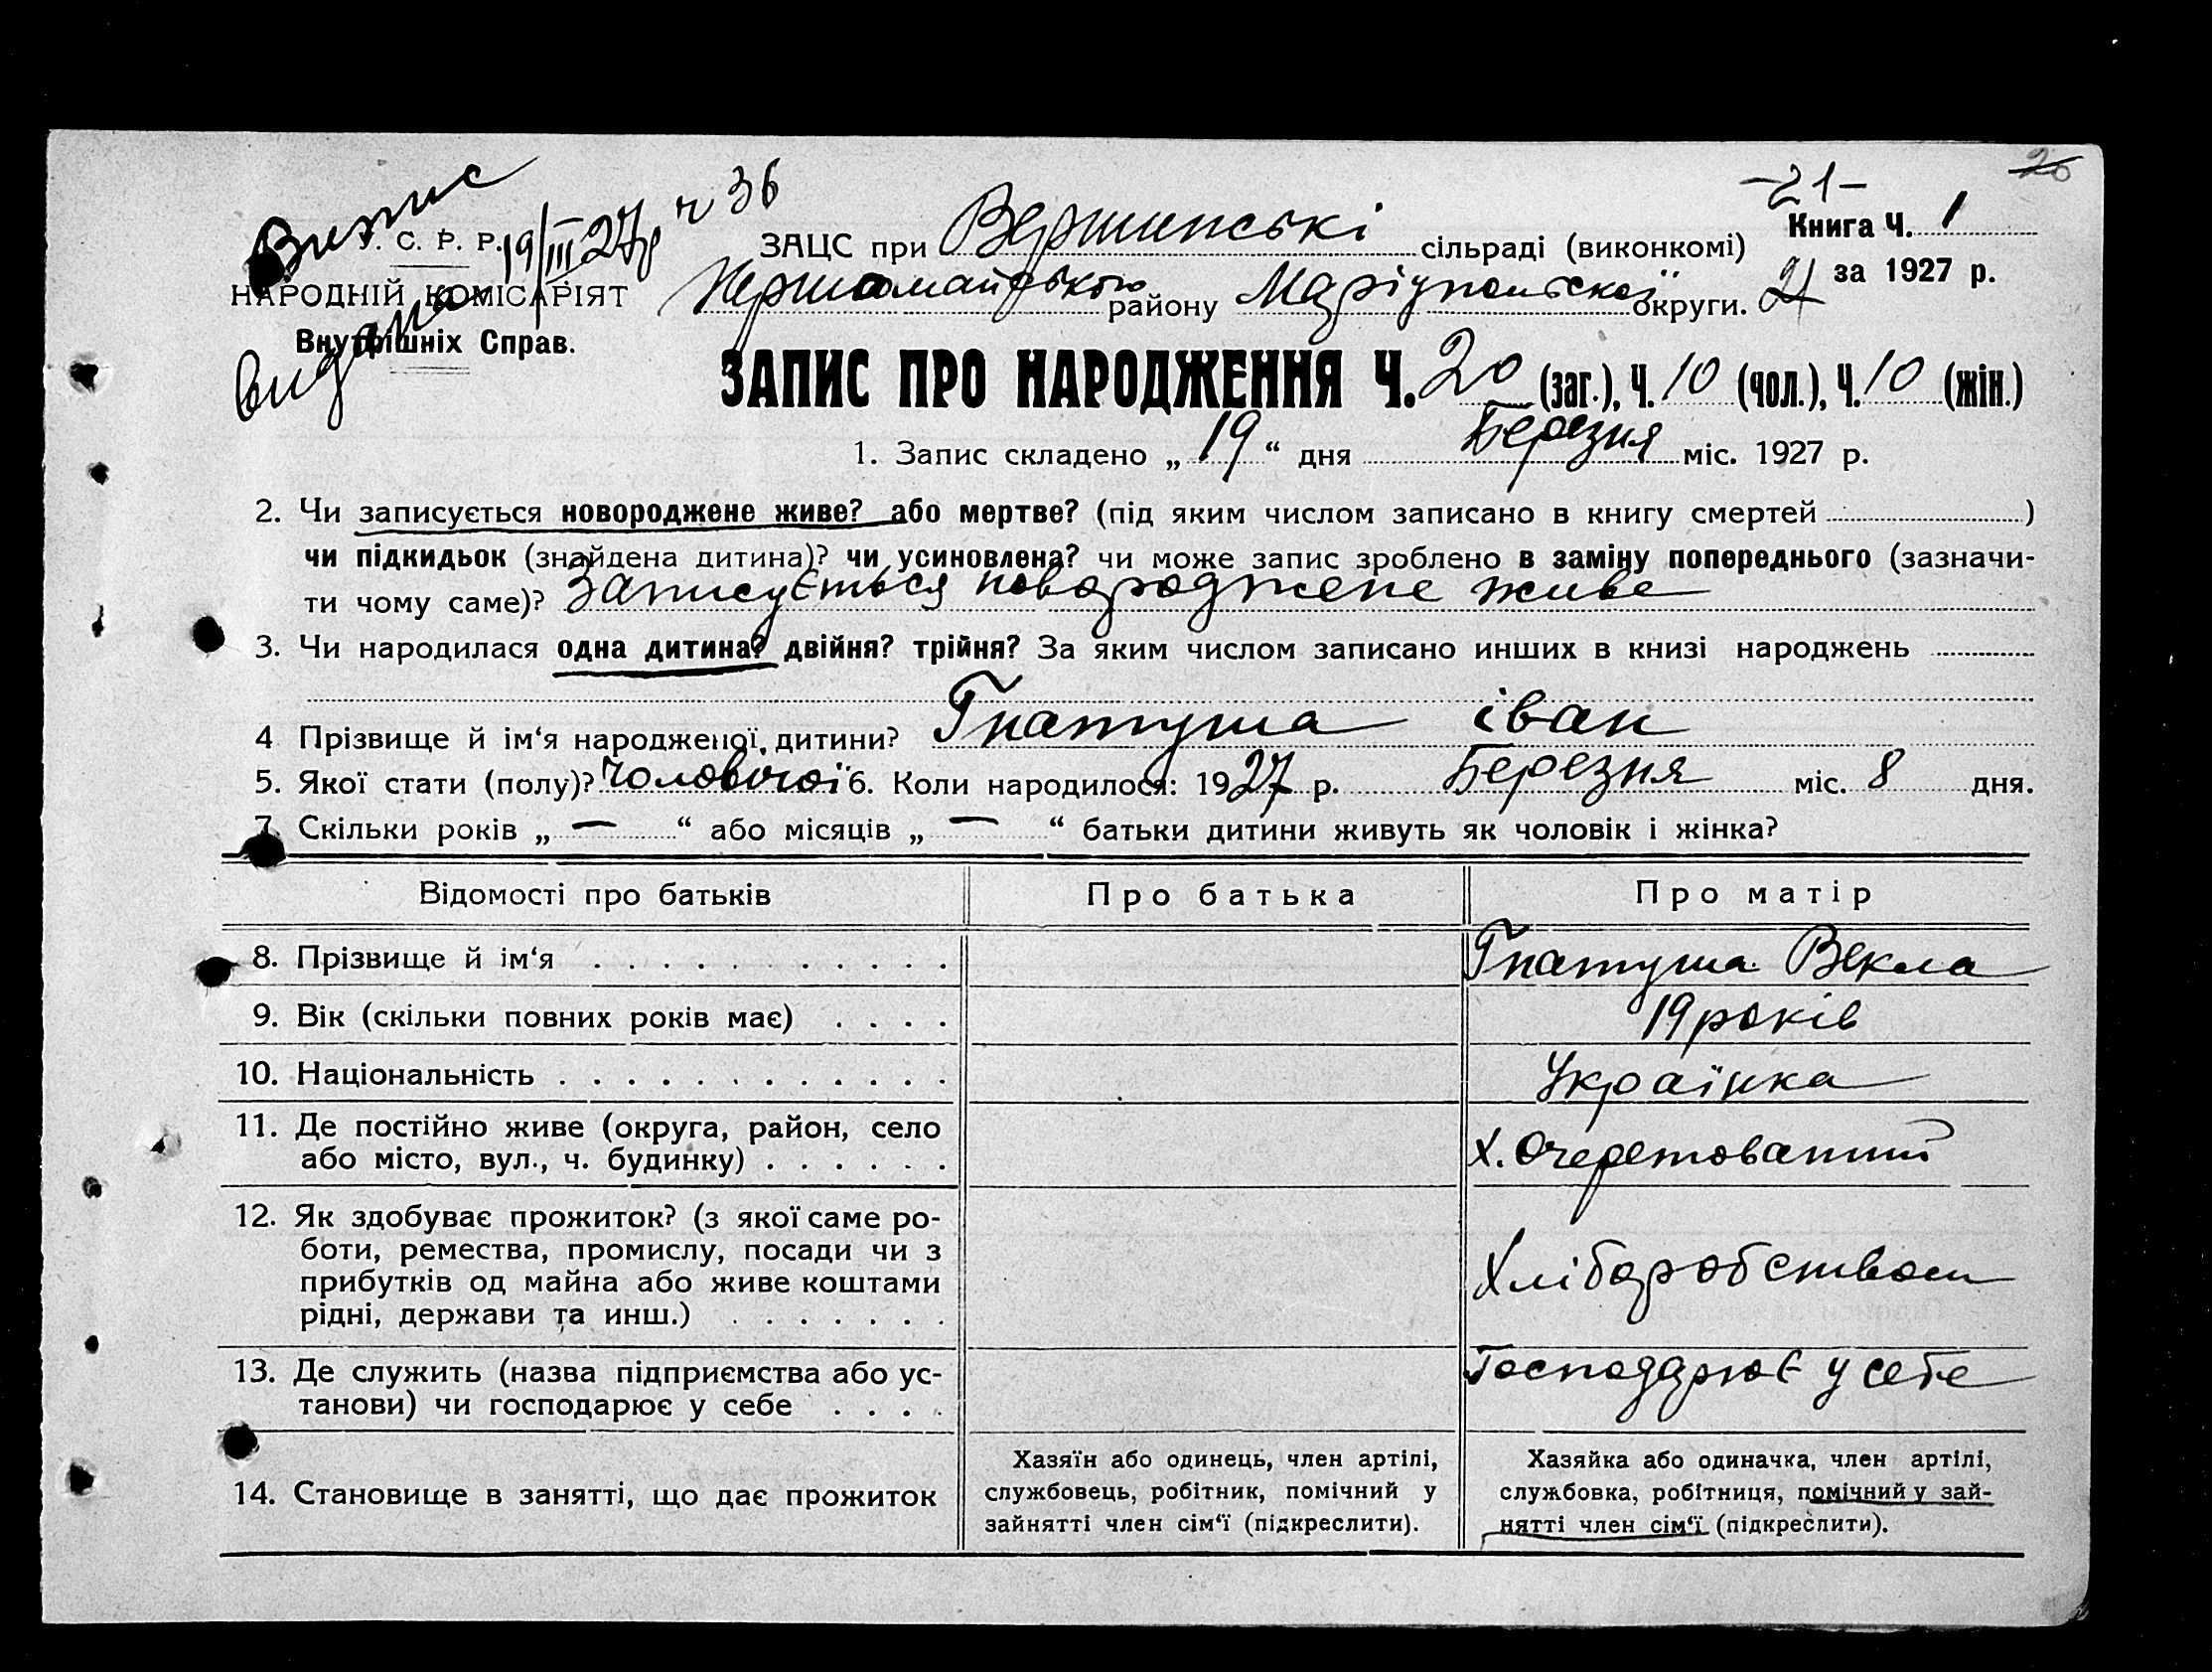 -21-
20
Випис 19/III 27р ч 36
видано
У. С. Р. Р.
НАРОДНІЙ КОМІСАРІЯТ
Внутрішніх Справ.
Книга Ч. 1
ЗАЦС при Вершинські сільраді (виконкомі)
за 1927 р.
Першомайського району Маріупольської округи. 21
ЗАПИС ПРО НАРОДЖЕННЯ Ч. 20 (заг.), Ч. 10 (чол.), Ч. 10 (жін.)
1. Запис складено „ 19 “ дня Березня міс. 1927 р.
2. Чи записується новороджене живе? або мертве? (під яким числом записано в книгу смертей )
чи підкидьок (знайдена дитина)? чи усиновлена? чи може запис зроблено в заміну попереднього (зазначи-
ти чому саме)? Записується новороджене живе
3. Чи народилася одна дитина? двійня? трійня? За яким числом записано инших в книзі народжень
4 Прізвище й ім‘я народженої дитини? Гнатуша іван
5. Якої стати (полу)? Чоловічої 6. Коли народилося: 1927 р. Березня міс. 8 дня.
7. Скільки років „ — “ або місяців „ — “ батьки дитини живуть як чоловік і жінка?
Відомості про батьків Про батька Про матір
8. Прізвище й ім‘я Гнатуша Векла
9. Вік (скільки повних років має) 19 років
10. Національність Українка
11. Де постійно живе (округа, район, село
або місто, вул., ч. будинку) х. Очеретоватий
12. Як здобуває прожиток? (з якої саме ро-
боти, ремества, промислу, посади чи з
прибутків од майна або живе коштами
рідні, держави та инш.) Хліборобством
13. Де служить (назва підприємства або ус-
танови) чи господарює у себе Господарює у себе
14. Становище в занятті, що дає прожиток
Хазяїн або одинець, член артілі,
службовець, робітник, помічний у
зайнятті член сім‘ї (підкреслити).
Хазяйка або одиначка, член артілі,
службовка, робітниця, помічний у зай-
нятті член сім‘ї (підкреслити).